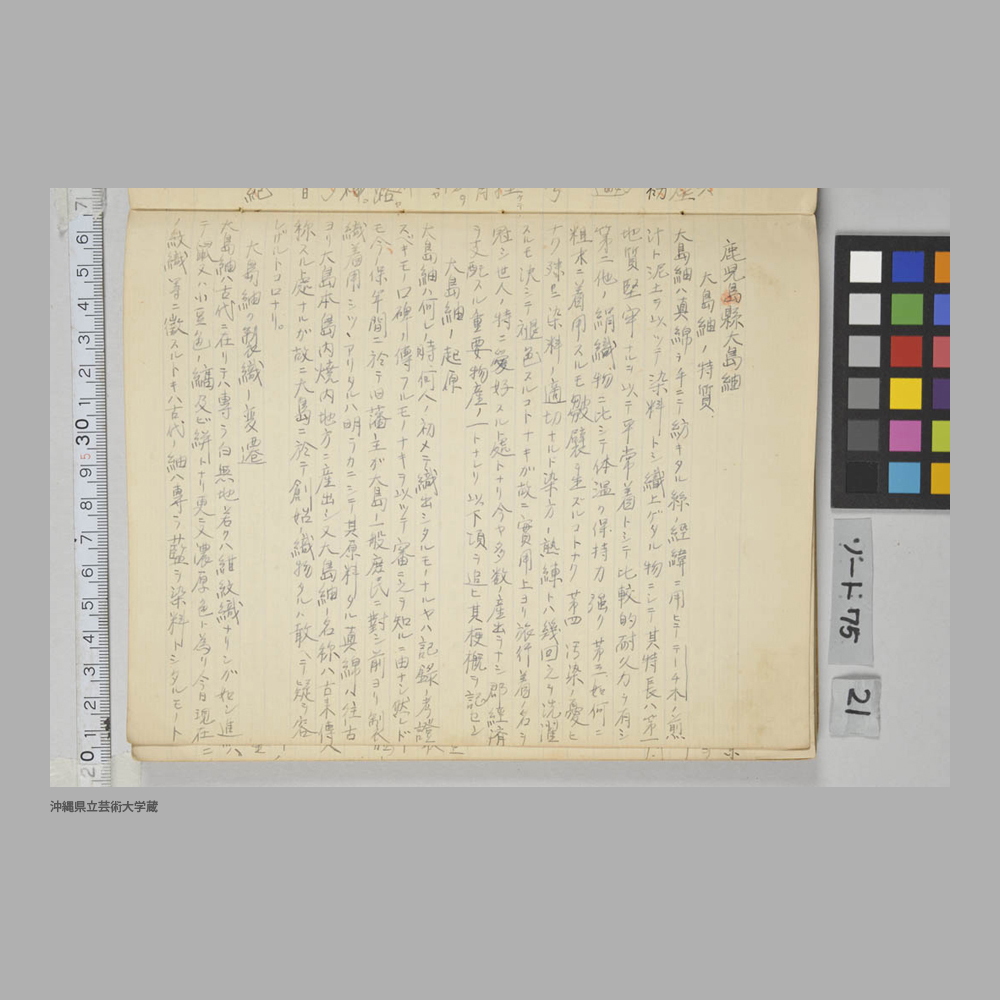 鹿児島縣大島紬
大島紬ノ特質.
大島紬ハ真綿ヲ手ニテ紡キタル絲経緯ニ用ヒテーチ木ノ煎
汁ト泥土ヲ以ッテ染料トシ織上ゲタル物ニシテ其特長ハ第一
地質堅牢ナルヲ以テ平常着トシテ比較的耐久力ヲ有シ
第二他ノ絹織物ニ比シテ体温ヲ保持力強ク第三如何ニ
粗末ニ着用スルモ皺襞ヲ生ズルコトナク第四汚染ノ憂ヒ
ナク殊ニ染料ノ適切ナルト染方ノ熟練トハ幾回之ヲ洗濯
スルモ決シテ褪色スルコトナキガ故ニ實用上ヨリ旅行着ノ名ヲ
シ世人ノ特ニ愛好スル處トナリ今ヤ多数ノ産出ヲナシ郡経済
ヲ支配スル重要物産ノ一トナレリ以下項ヲ追ヒ其梗概ヲ記セン
大島紬ノ起原
大島紬ハ何レノ時何人ノ初メテ織出シタルモノナルヤハ記録ノ考證
スベキモノ口碑ノ傳フルモノナキヲ以ッテ審ニ之ヲ知ルニ由ナシ然レドモ
今ノ保年間ニ於テ旧藩主ガ大島一般庶民ニ對シ前ヨリ
織着用シツヽアリタルハ明ラカニシテ其原料タル真綿ハ往古
ヨリ大島本島内焼内地方ニ産出シ又大島紬ノ名称ハ古来傳ヘ
称スル處ナルガ故ニ大島ニ於テ創始ノ織物タルハ敢ヘテ疑ヲ容
レザルトコロナリ。
大島紬ノ製織ノ変遷
大島紬ハ古代ニ在リテハ専ラ白無地若クハ紺紋織ナリシガ如シ進ンデ
鼠又ハ小豆色ノ縞及ビ絣トナリ更ニ又濃厚色ト為リ今日現在ニ
ノ紋織等ニ徴スルトキハ古代ノ紬ハ専ラ藍ヲ染料トシタルモノト
ゾード75
21
沖縄県立芸術大学蔵